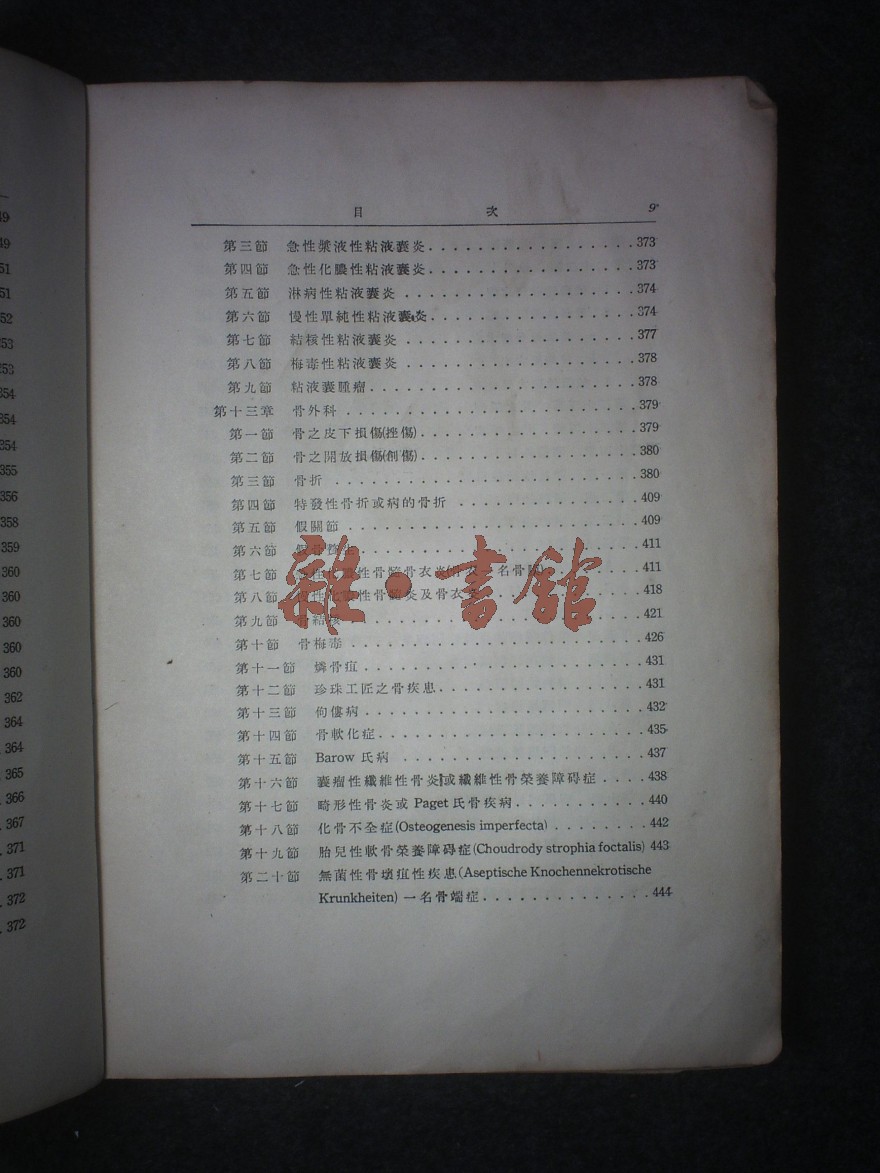 49
49
51
51
52
353
353
354
354
354
355
356
358
359
360
360
360
360
360
362
364
364
365
366
367
371
371
372
372
目 次 9
第三節 急性漿液性粘液囊炎 373
第四節 急性化膿性粘液囊炎 373
第五節 淋病性粘液囊炎 374
第六節 慢性單純性粘液囊炎 374
第七節 結核性粘液囊炎 377
第八節 梅毒性粘液囊炎 378
第九節 粘液囊腫瘤 378
第十三章 骨外科 379
第一節 骨之皮下損傷(挫傷) 379
第二節 骨之開放損傷(創傷) 380
第三節 骨折 380
第四節 特發性骨折或病的骨折 409
第五節 假關節 409
第六節 411
第七節 性骨髓骨衣炎 一名骨 411
第八節 性骨 炎及骨衣 418
第九節 骨結核 421
第十節 骨梅毒 426
第十一節 燐骨疽 431
第十二節 珍珠工匠之骨疾患 431
第十三節 佝僂病 432
第十四節 骨軟化症 435
第十五節 Barow 氏病 437
第十六節 囊瘤性纖維性骨炎或纖維性骨榮養障碍症 438
第十七節 畸形性骨炎或 Paget 氏骨疾病 440
第十八節 化骨不全症(Osteogenesis imperfecta) 442
第十九節 胎兒性軟骨榮養障碍症(Choudrody strophia foctalis) 443
第二十節 無菌性骨壞疽性疾患(Aseptische Knochennekrotische
Krunkheiten) 一名骨端症 444
雜·書館